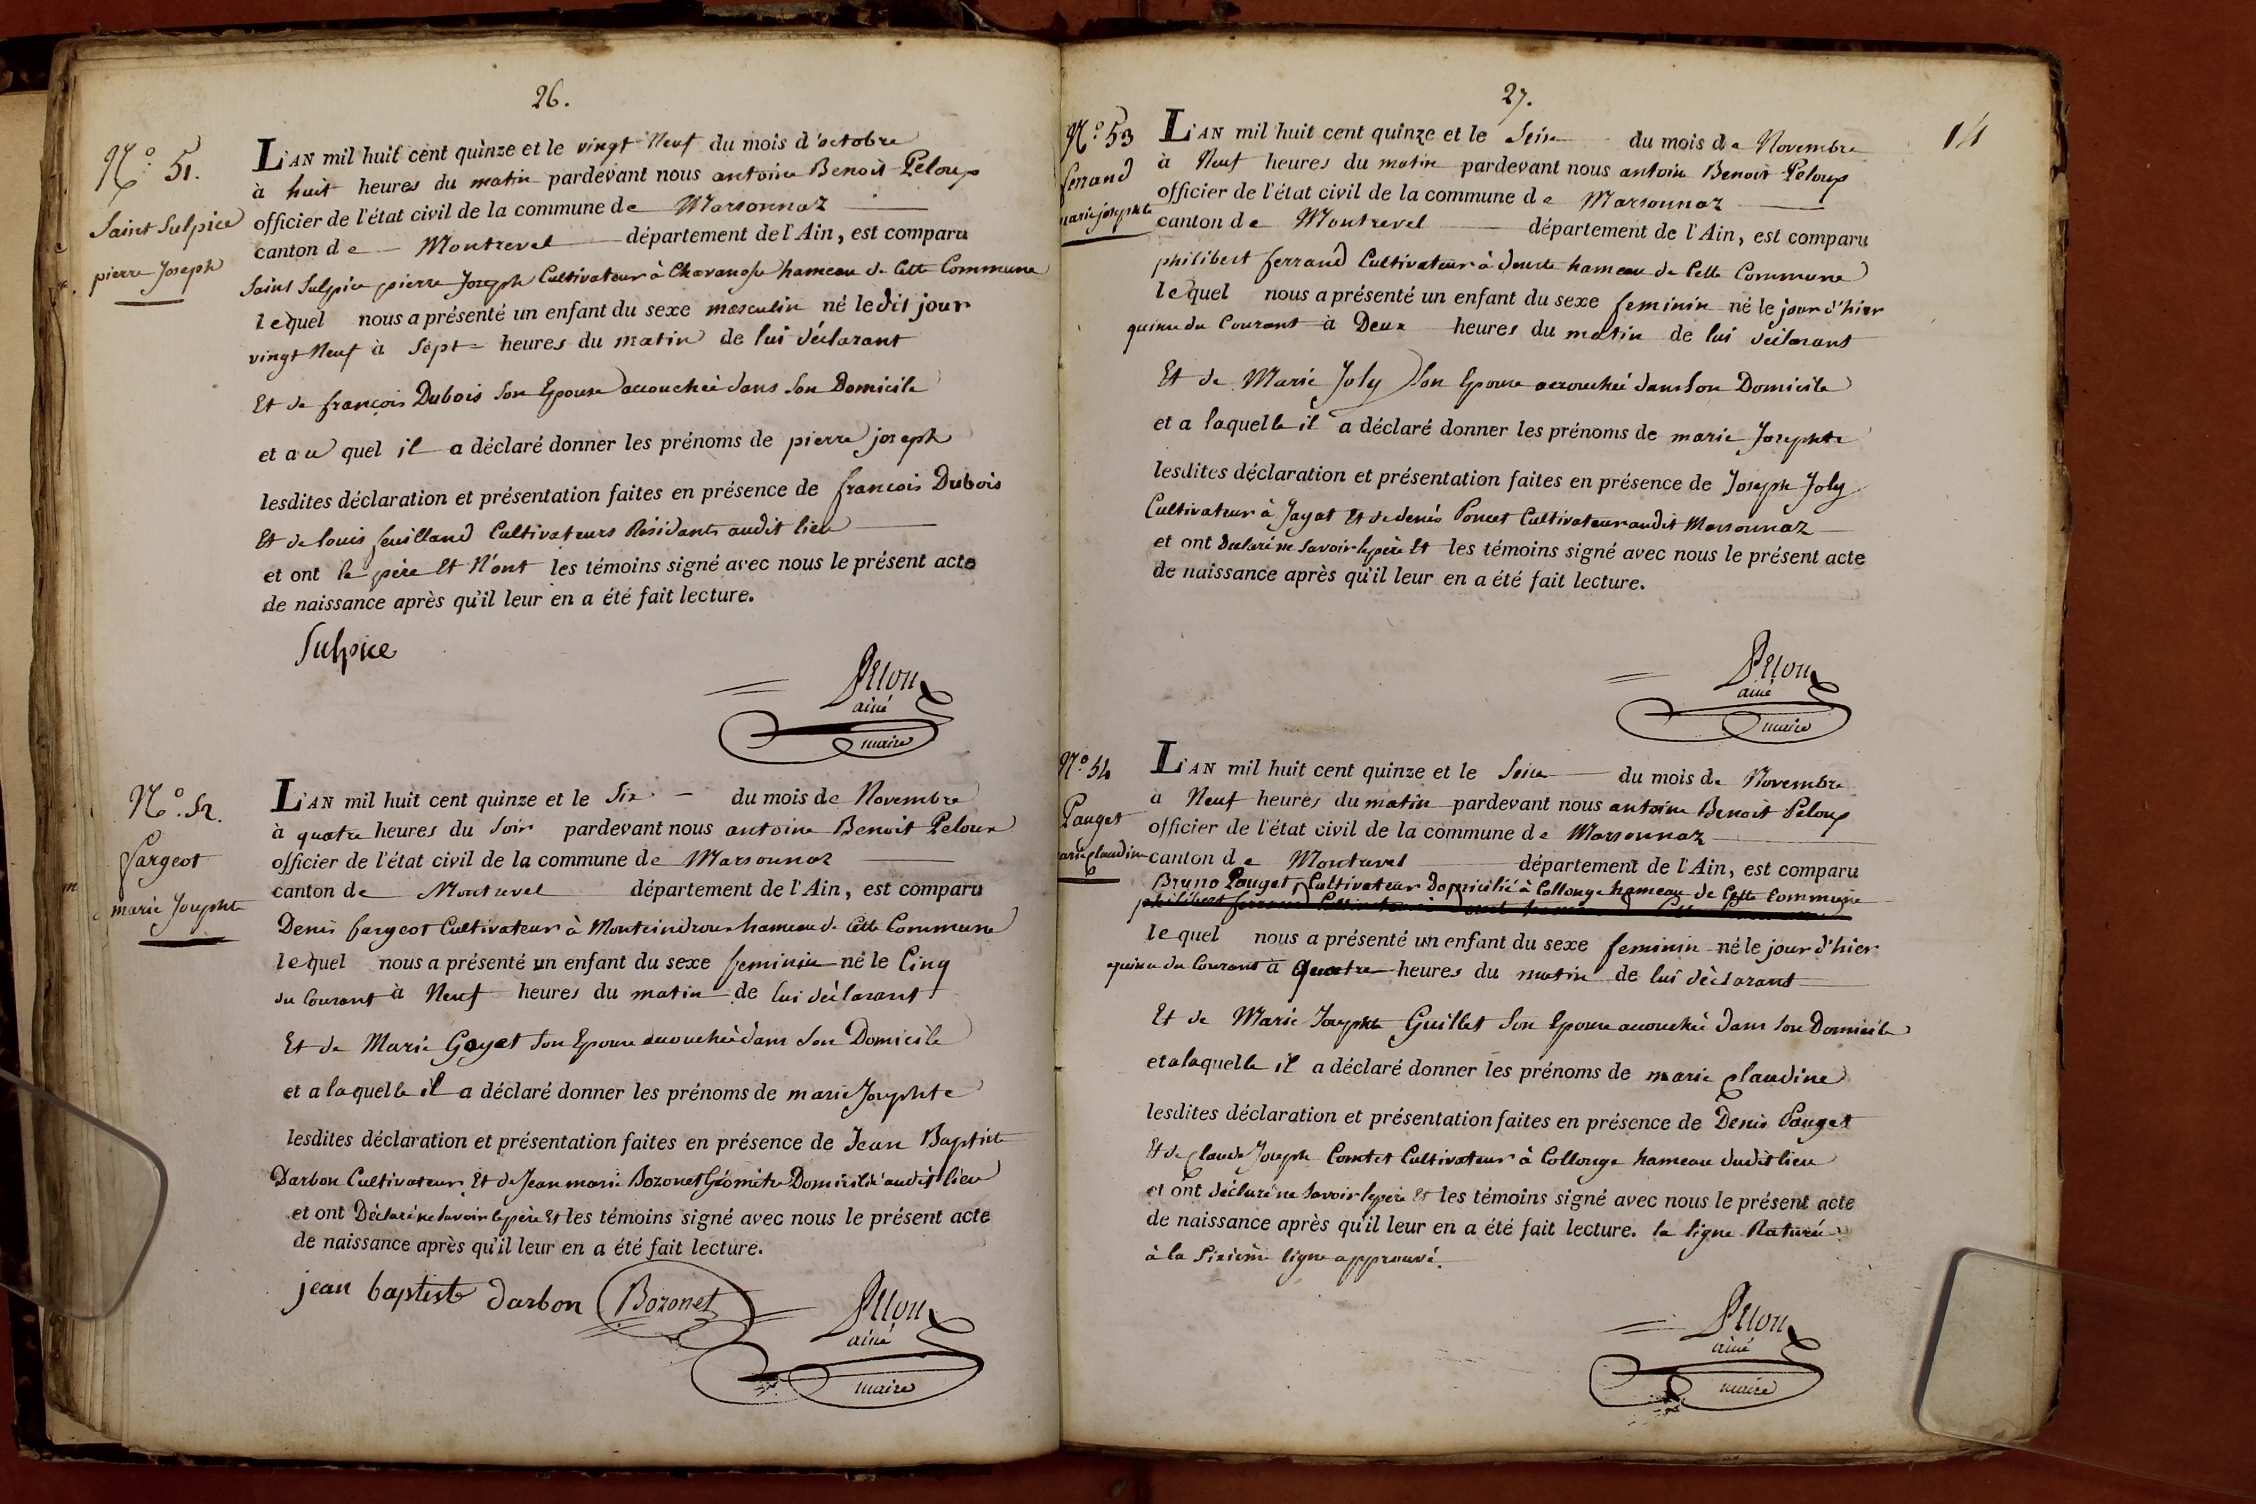 26.
N.o 51.
Saint Sulpice
pierre Joseph
L'AN mil huit cent quinze et le vingt Neuf du mois d'octobre
à huit heures du matin pardevant nous antoine Benoit Peloux
officier de l'état civil de la commune de Marsonnaz
canton de Montrevel département de l'Ain, est comparu
Saint Sulpice pierre Joseph Cultivateur à Chavanosse hameau de Cette Commune
lequel nous a présenté un enfant du sexe masculin né le dit jour
vingt Neuf à Sept heures du matin de lui déclarant
Et de françois Dubois Son Epouse accouchée dans Son Domicile
et au quel il a déclaré donner les prénoms de pierre joseph
lesdites déclaration et présentation faites en présence de francois Dubois
Et de louis feuilland Cultivateurs Résidants audit lieu
et ont le père Et N'ont les témoins signé avec nous le présent acte
de naissance après qu'il leur en a été fait lecture.
Sulpice
Peloux
ainé
maire
N.o 52.
fargeot
marie Josephte
L'AN mil huit cent quinze et le Six du mois de Novembre
à quatre heures du Soir pardevant nous antoine Benoit Peloux
officier de l'état civil de la commune de Marsonnaz
canton de Montrevel département de l'Ain, est comparu
Denis fargeot Cultivateur à Montsindroux hameau de Cette Commune
lequel nous a présenté un enfant du sexe feminin né le Cinq
du Courant à Neuf heures du matin de lui déclarant
Et de Marie Goyet Son Epouse accouchée dans Son Domicile
et a laquelle il a déclaré donner les prénoms de marie Josephte
lesdites déclaration et présentation faites en présence de Jean Baptiste
Darbon Cultivateur Et de Jean marie Bozonet Géomètre Domiciliés audit lieu
et ont Déclaré ne Savoir le père Et les témoins signé avec nous le présent acte
de naissance après qu'il leur en a été fait lecture.
jean baptiste darbon Bozonet
Peloux
ainé
maire
27.
14
N.o 53
ferrand
marie josephte
L'AN mil huit cent quinze et le Seize du mois de Novembre
à Neuf heures du matin pardevant nous antoine Benoit Peloux
officier de l'état civil de la commune de Marsonnaz
canton de Montrevel département de l'Ain, est comparu
philibert ferrand Cultivateur à hameau de Cette Commune
lequel nous a présenté un enfant du sexe feminin né le jour d'hier
quinze du Courant à Deux heures du matin de lui déclarant
Et de Marie Joly Son Epouse accouchée dans Son Domicile
et a laquelle il a déclaré donner les prénoms de marie Josephte
lesdites déclaration et présentation faites en présence de Joseph Joly
Cultivateur à Jayat Et de denis Poncet Cultivateur audit Marsonnaz
et ont declaré ne Savoir le père Et les témoins signé avec nous le présent acte
de naissance après qu'il leur en a été fait lecture.
Peloux
ainé
maire
N.o 54
Pauget
marie claudine
L'AN mil huit cent quinze et le Seize du mois de Novembre
à Neuf heures du matin pardevant nous antoine Benoit Peloux
officier de l'état civil de la commune de Marsonnaz
canton de Montrevel département de l'Ain, est comparu
Bruno Pauget, Cultivateur Domicilié à Collonge hameau de Cette Commune
philibert ferrand Cultivateur
lequel nous a présenté un enfant du sexe feminin né le jour d'hier
quinze du Courant à Quatre heures du matin de lui déclarant
Et de Marie Josephte Guillet Son Epouse accouchée dans Son Domicile
et a laquelle il a déclaré donner les prénoms de marie claudine
lesdites déclaration et présentation faites en présence de Denis Pauget
Et de claude Joseph Comtet Cultivateur à Collonge hameau dudit lieu
et ont déclaré ne Savoir le père Et les témoins signé avec nous le présent acte
de naissance après qu'il leur en a été fait lecture. la ligne Raturée
à la Sixième ligne approuvé.
Peloux
ainé
maire